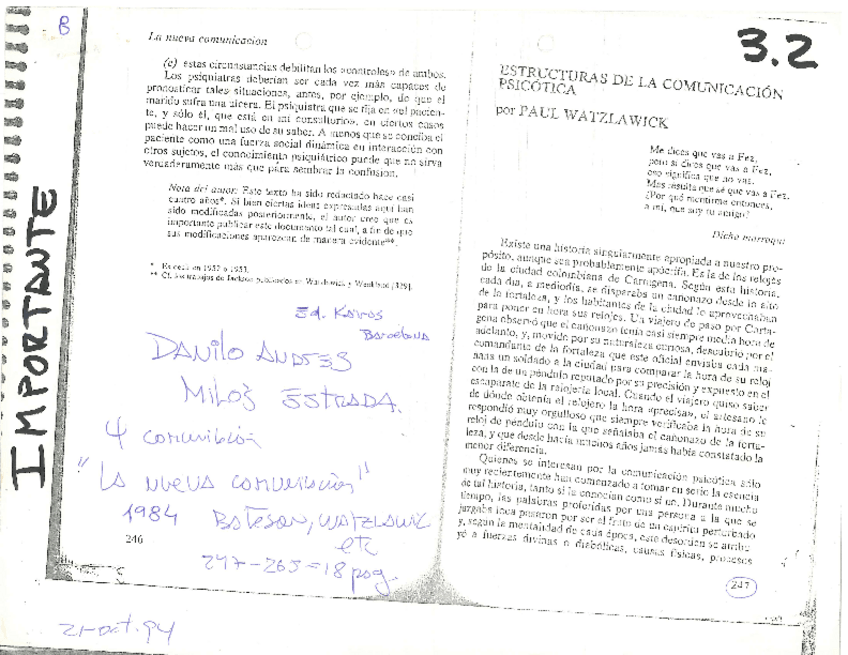 8
IMPORTANTE
La nueva comunicación
(c) estas circunstancias debilitan los «controles» de ambos.
Los psiquiatras deberían ser cada vez más capaces de
pronosticar tales situaciones, antes, por ejemplo, de que el
marido sufra una úlcera. El psiquiatra que se fija en «el pacien-
te, y sólo él, que está en mi consultorio», en ciertos casos
puede hacer un mal uso de su saber. A menos que se conciba el
paciente como una fuerza social dinámica en interacción con
otros sujetos, el conocimiento psiquiátrico puede que no sirva
verdaderamente más que para sembrar la confusión.
Nota del autor: Este texto ha sido redactado hace casi
cuatro años*. Si bien ciertas ideas expresadas aquí han
sido modificadas posteriormente, el autor cree que es
importante publicar este documento tal cual, a fin de que
sus modificaciones aparezcan de manera evidente**.
* Es decir en 1952 o 1953.
** Cf. los trabajos de Jackson publicados en Watzlawick y Weakland
Ed. Kairos
Barcelona
DANILO ANDRES
MILOS ESTRADA.
4 comunicación
"La nueva comunicación"
1984 Bateson, WATZLAWIK
etc
246
247-265=18 pag.
21-oct.94
3.2
ESTRUCTURAS DE LA COMUNICACIÓN
PSICÓTICA
por PAUL WATZLAWICK
Me dices que vas a Fez,
pero si dices que vas a Fez,
eso significa que no vas.
Mas resulta que sé que vas a Fez.
¿Por qué mentirme entonces,
a mí, que soy tu amigo?
Dicho marroquí
Existe una historia singularmente apropiada a nuestro pro-
pósito, aunque sea probablemente apócrifa. Es la de los relojes
de la ciudad colombiana de Cartagena. Según esta historia,
cada día, a mediodía, se disparaba un cañonazo desde lo alto
de la fortaleza, y los habitantes de la ciudad lo aprovechaban
para poner en hora sus relojes. Un viajero de paso por Carta-
gena observó que el cañonazo tenía casi siempre media hora de
adelanto, y, movido por su naturaleza curiosa, descubrió por el
comandante de la fortaleza que este oficial enviaba cada ma-
ñana un soldado a la ciudad para comparar la hora de su reloj
con la de un péndulo reputado por su precisión y expuesto en el
escaparate de la relojería local. Cuando el viajero quiso saber
de dónde obtenía el relojero la hora «precisa», el artesano le
respondió muy orgulloso que siempre verificaba la hora de su
reloj de péndulo con la que señalaba el cañonazo de la forta-
leza, y que desde hacía muchos años jamás había constatado la
menor diferencia.
Quienes se interesan por la comunicación psicótica sólo
muy recientemente han comenzado a tomar en serio la esencia
de tal historia, tanto si la conocían como si no. Durante mucho
tiempo, las palabras proferidas por una persona a la que se
juzgaba loca pasaron por ser el fruto de un espíritu perturbado
y, según la mentalidad de cada época, este desorden se atribu-
yó a fuerzas divinas o diabólicas, causas físicas, procesos
247